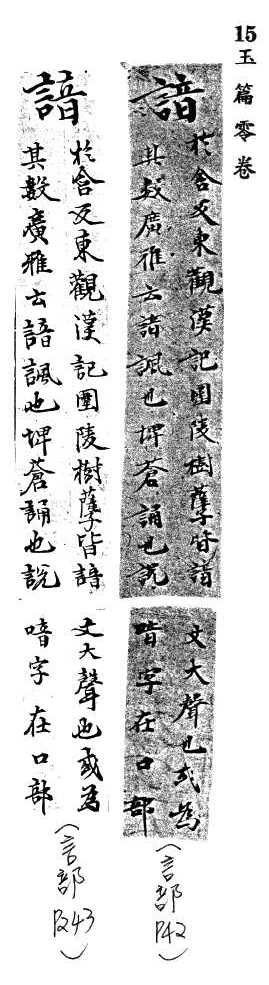 15 玉篇零卷
諳
於含反東觀漢記園陵樹孽皆諳
其数廣雅云諳諷也埤蒼誦也說
文大聲也或為
喑字在口部
(言部 P42)
諳
於含反東觀漢記園陵樹孽皆諳
其數廣雅云諳諷也埤蒼誦也說
文大聲也或為
喑字在口部
(言部 P243)